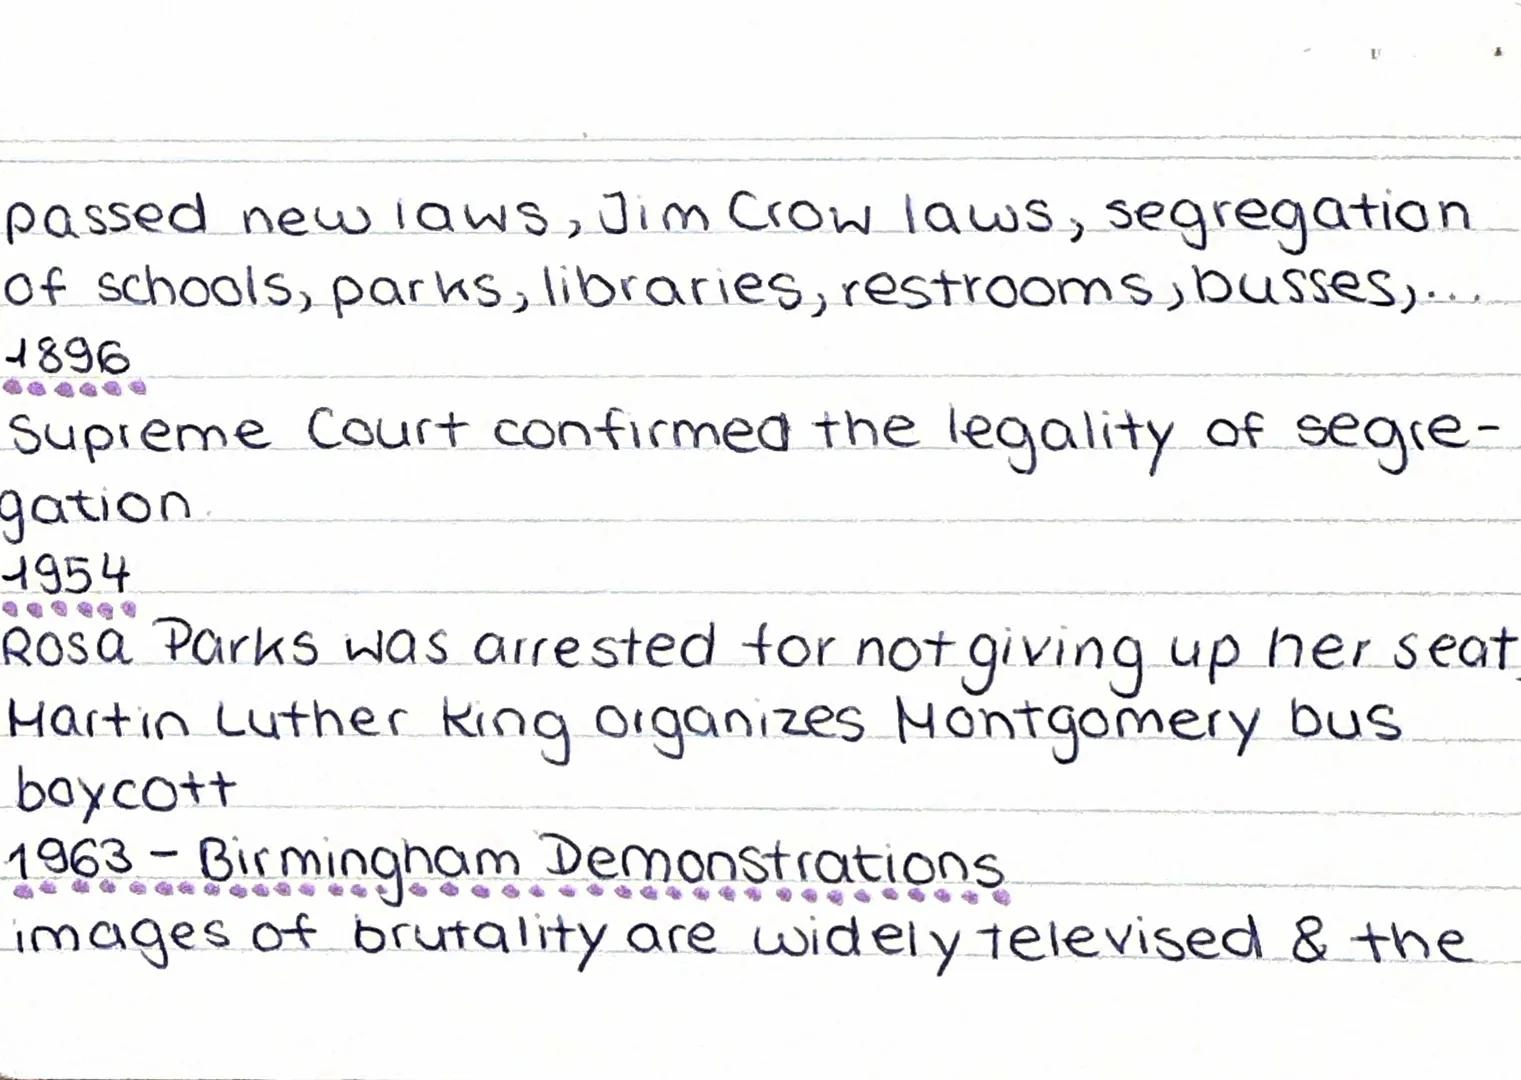 passed new laws, Jim Crow laws, segregation
of schools, parks, libraries, restrooms, busses,...
1896
Supreme Court confirmed the legality of segre-
gation.
1954
Rosa Parks was arrested for not giving up her seat,
Martin Luther King organizes Montgomery bus
boycott
1963 - Birmingham Demonstrations
images of brutality are widely televised & the